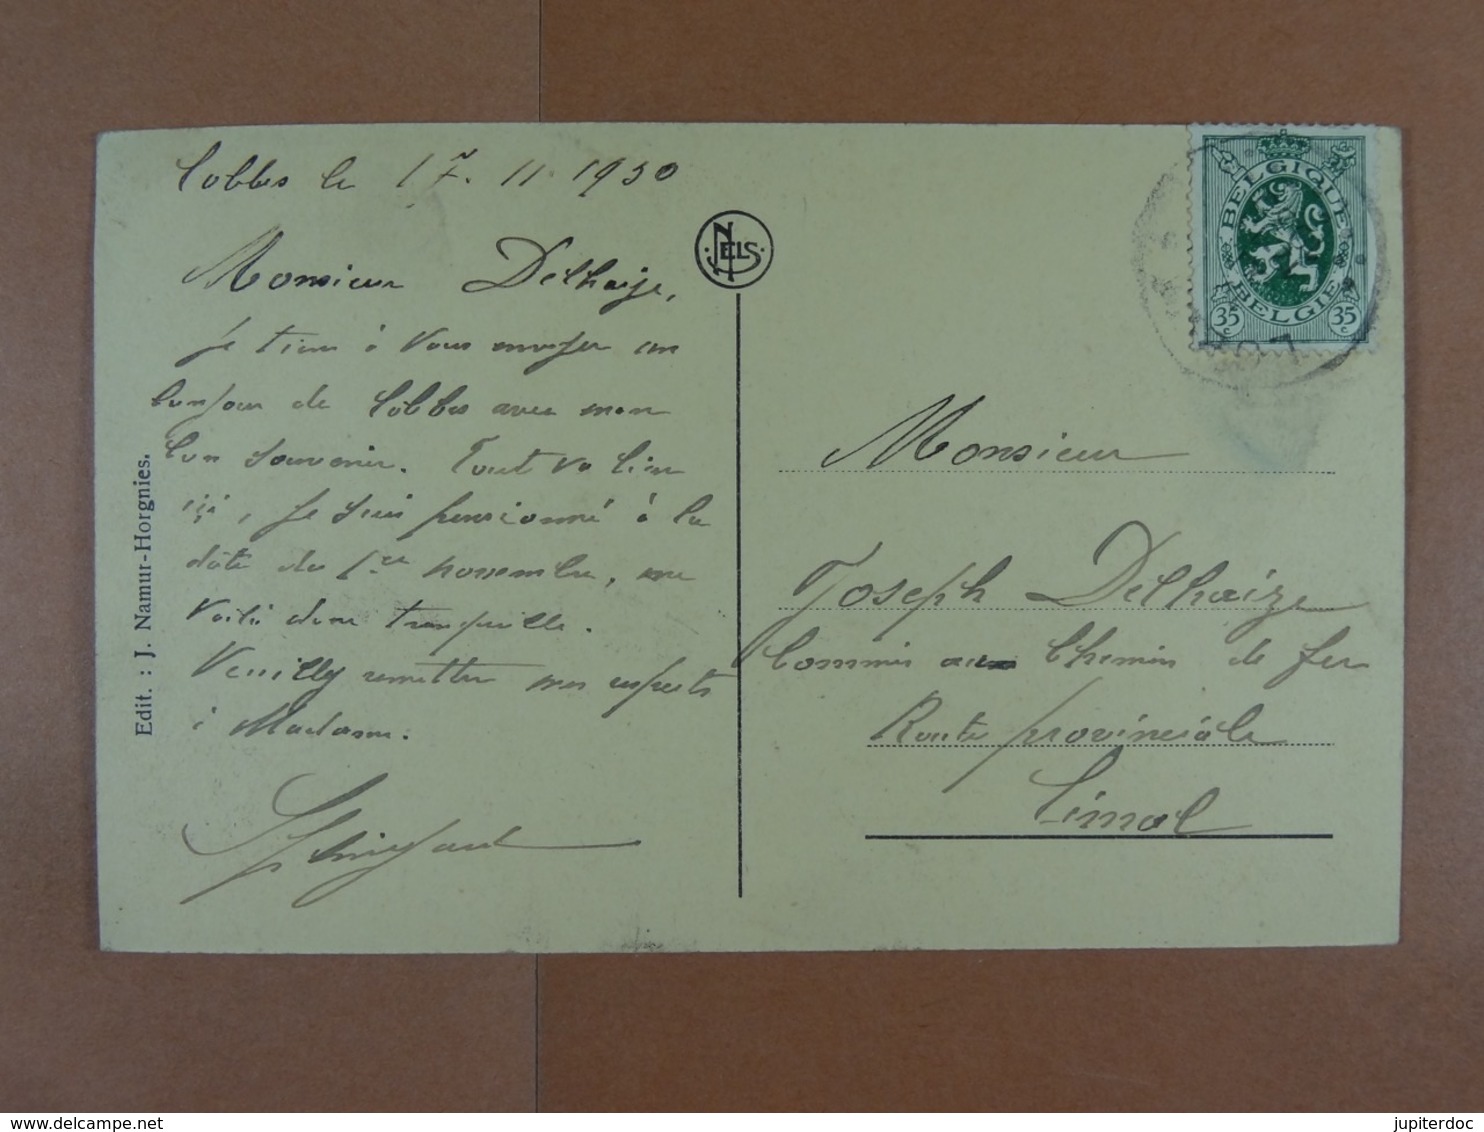 Lobbes le 17. 11 1930
Monsieur Delhaize,
Je tiens à vous envoyer un
bonjour de Lobbes avec mon
bon souvenir. Tout va bien
ici, je suis pensionné à la
date du 1er novembre, me
voilà donc tranquille.
Veuilly remettre mes respects
à Madame.
Edit. : J. Namur-Horgnies.
NELS
BELGIQUE
BELGIE
35 c
35 c
Monsieur
Joseph Delhaize
Commis au Chemin de fer
Route provinciale
Limal
www.delcampe.net
jupiterdoc